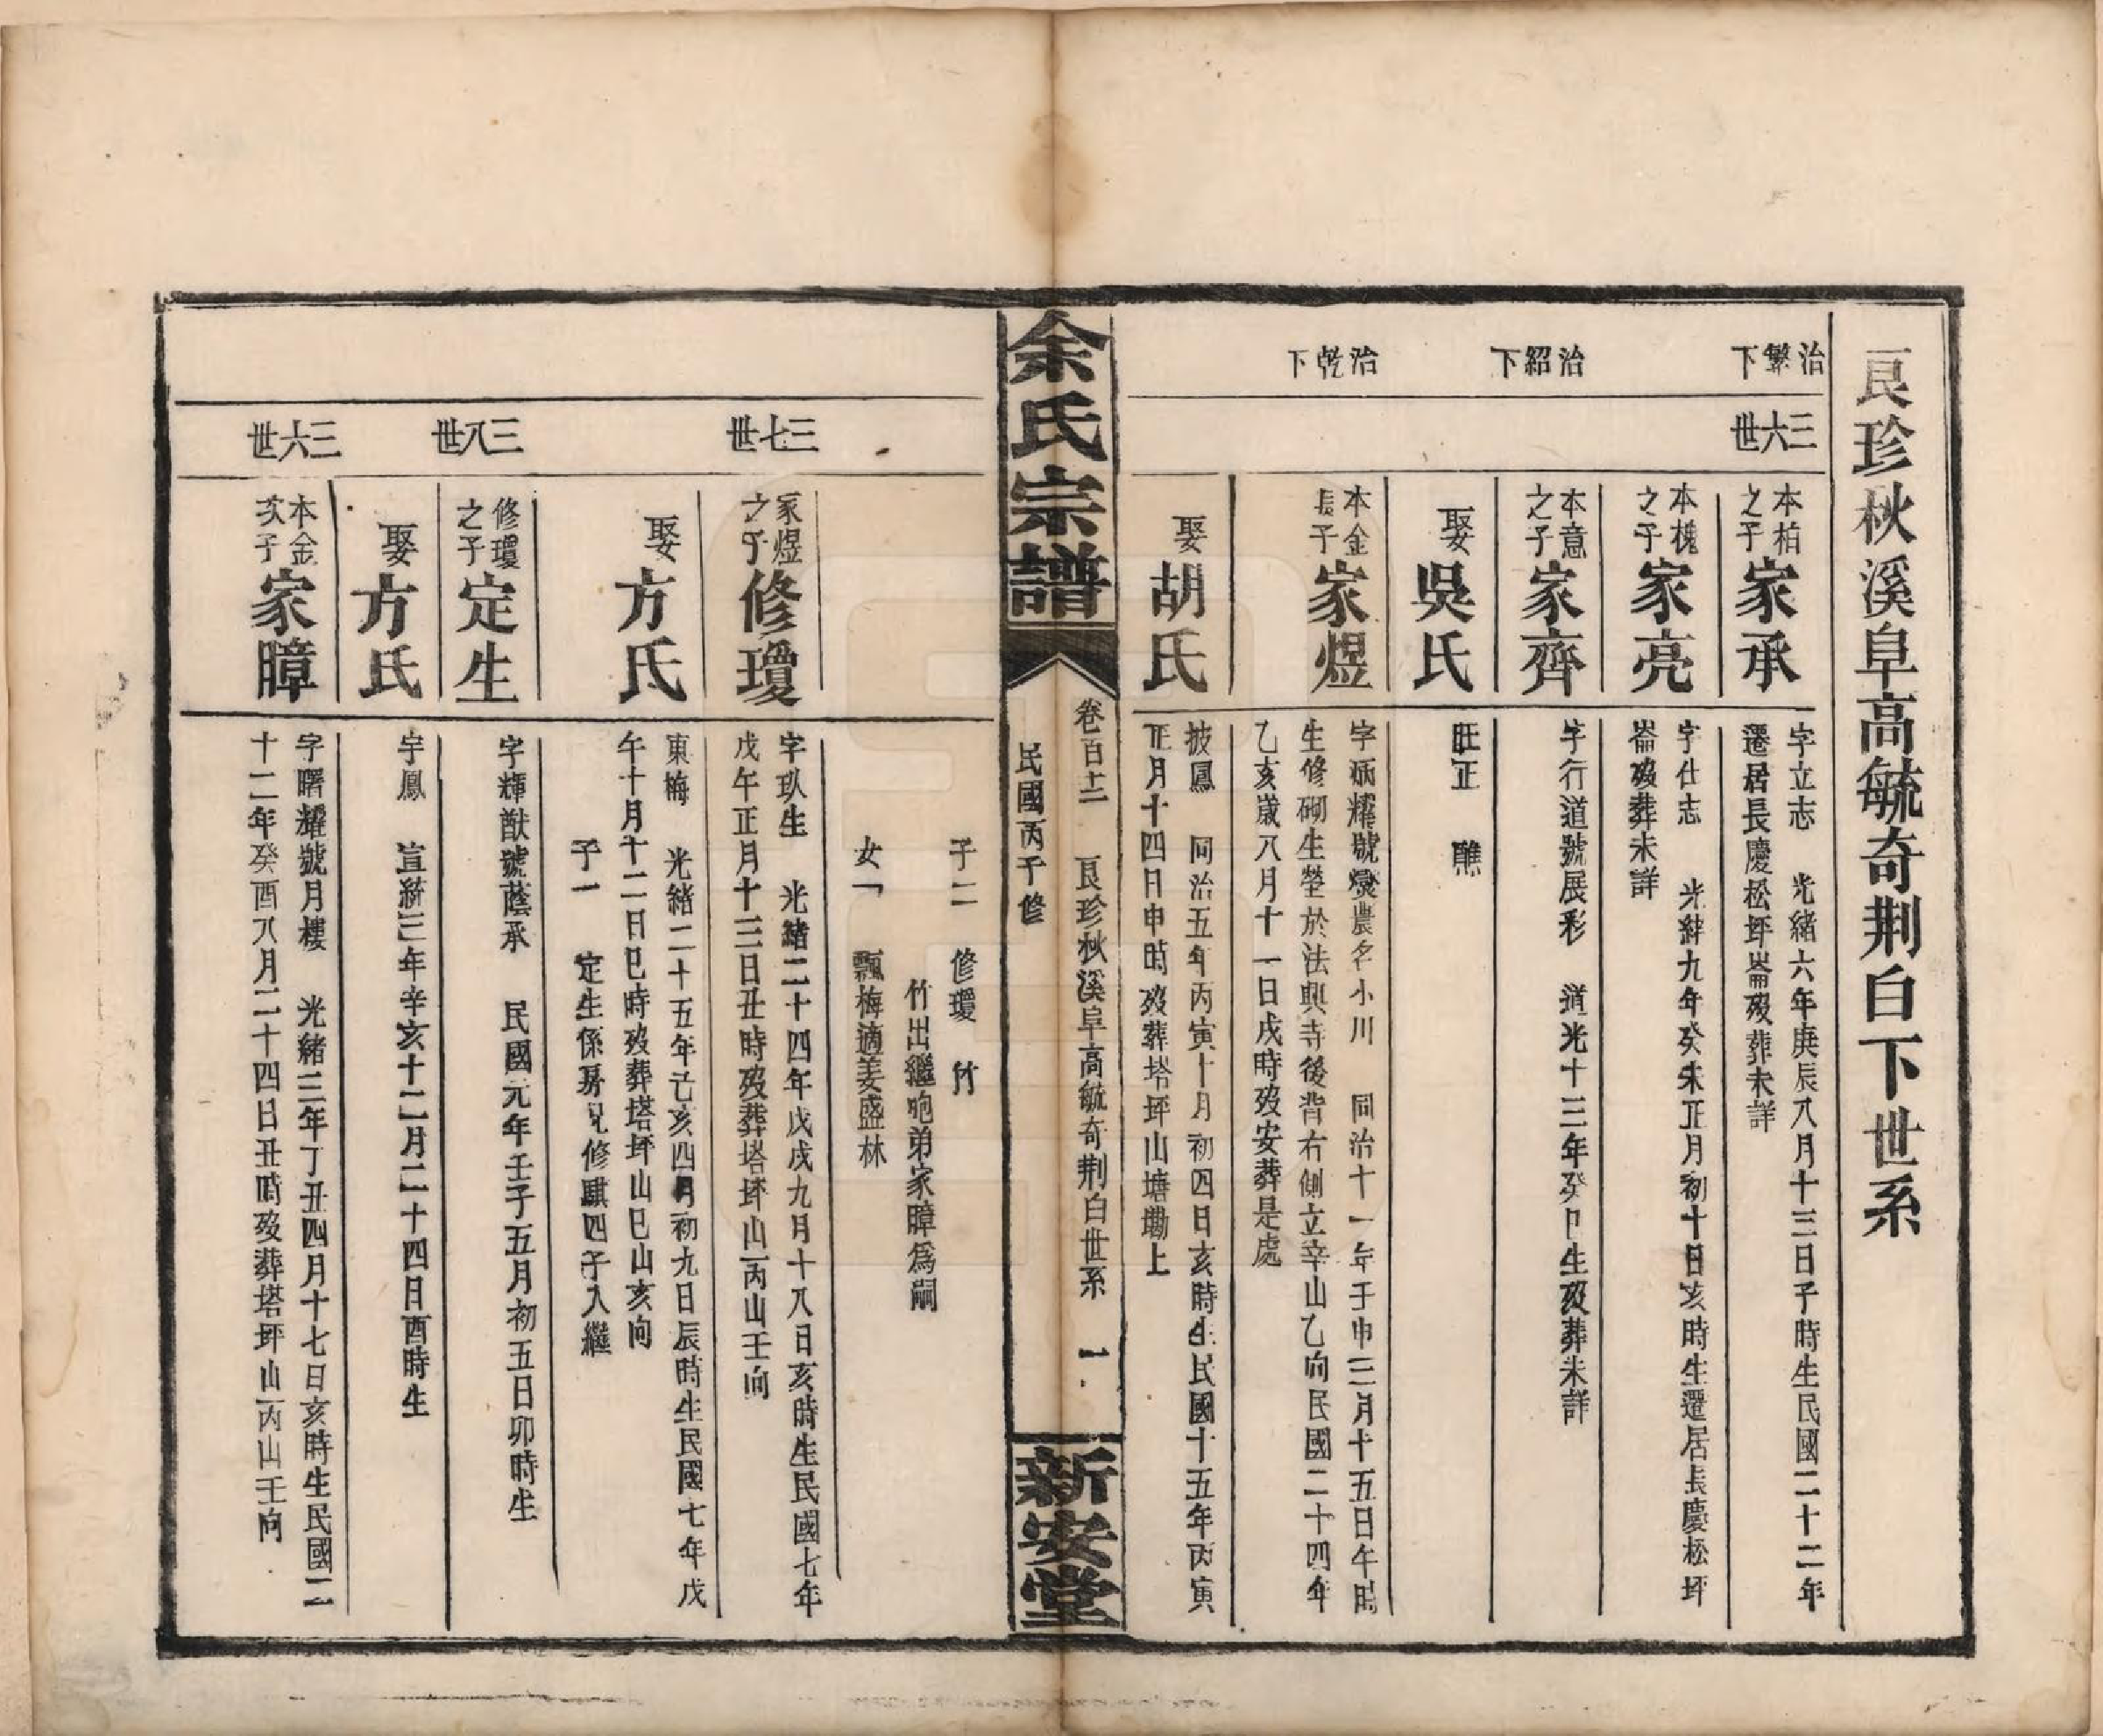 良珍秋溪阜高毓奇荆白下世系
治繁下
三六世
本柏之子
家承
字立志　光緒六年庚辰八月十三日子時生民國二十二年
遷居長慶松坪崙歿葬未詳
本槐之子
家亮
字仕志　光緒九年癸未正月初十日亥時生遷居長慶松坪
崙歿葬未詳
治紹下
本意之子
家齊
字行道號展彩　道光十三年癸巳生歿葬未詳
娶
吳氏
旺正　醮
治乾下
本金長子
家煜
字炳耀號燮農名小川　同治十一年壬申三月十五日午時
生修砌生塋於法興寺後背右側立辛山乙向民國二十四年
乙亥歲八月十一日戌時歿安葬是處
娶
胡氏
披鳳　同治五年丙寅十月初四日亥時生民國十五年丙寅
正月十四日申時歿葬塔坪山塘墈上
余氏宗譜
卷百十二　良珍秋溪阜高毓奇荆白世系　一
民國丙子修
新安堂
子二　修瓊　竹
竹出繼咆弟家暲爲嗣
女一　飄梅適姜盛林
三七世
家煜之子
修瓊
字玖生　光緒二十四年戊戌九月十八日亥時生民國七年
戊午正月十三日丑時歿葬塔坪山丙山壬向
娶
方氏
東梅　光緒二十五年己亥四月初九日辰時生民國七年戊
午十月十二日巳時歿葬塔坪山巳山亥向
子一　定生係房兄修騏四子入繼
三八世
修瓊之子
定生
字輝猷號蔭承　民國元年壬子五月初五日卯時生
娶
方氏
字鳳　宣統三年辛亥十二月二十四日酉時生
三六世
本金次子
家暲
字曙耀號月樓　光緒三年丁丑四月十七日亥時生民國二
十二年癸酉八月二十四日丑時歿葬塔坪山丙山壬向